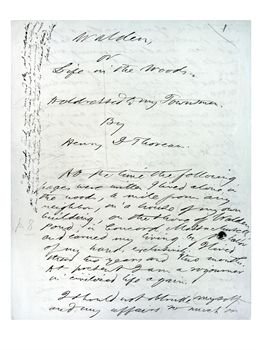 1
Walden,
or
Life in the Woods.
Addressed to my Townsmen.
By
Henry D Thoreau.
At the time the following
pages were written I lived alone in
the woods, a mile from any
neighbor, in a house of my own
building, on the shore of Walden
Pond in Concord Massachusetts
and earned my living by the labor
of my hands exclusively. I lived
there two years and two months.
At present I am a sojourner
in civilized life again.
I should not obtrude myself
and my affairs so much on